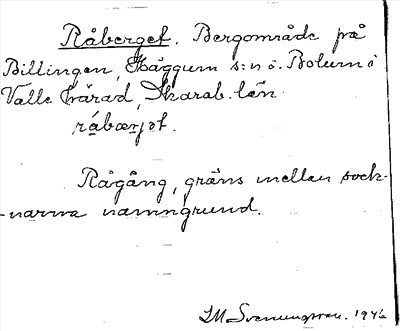 Råberget. Bergområde på
Billingen, Häggum s:n ö. Bolum i
Valle härad, Skarab. län.
råbærjət.
Rågång, gräns mellan sock-
-narna namngrund.
SM Svenungsson. 1946